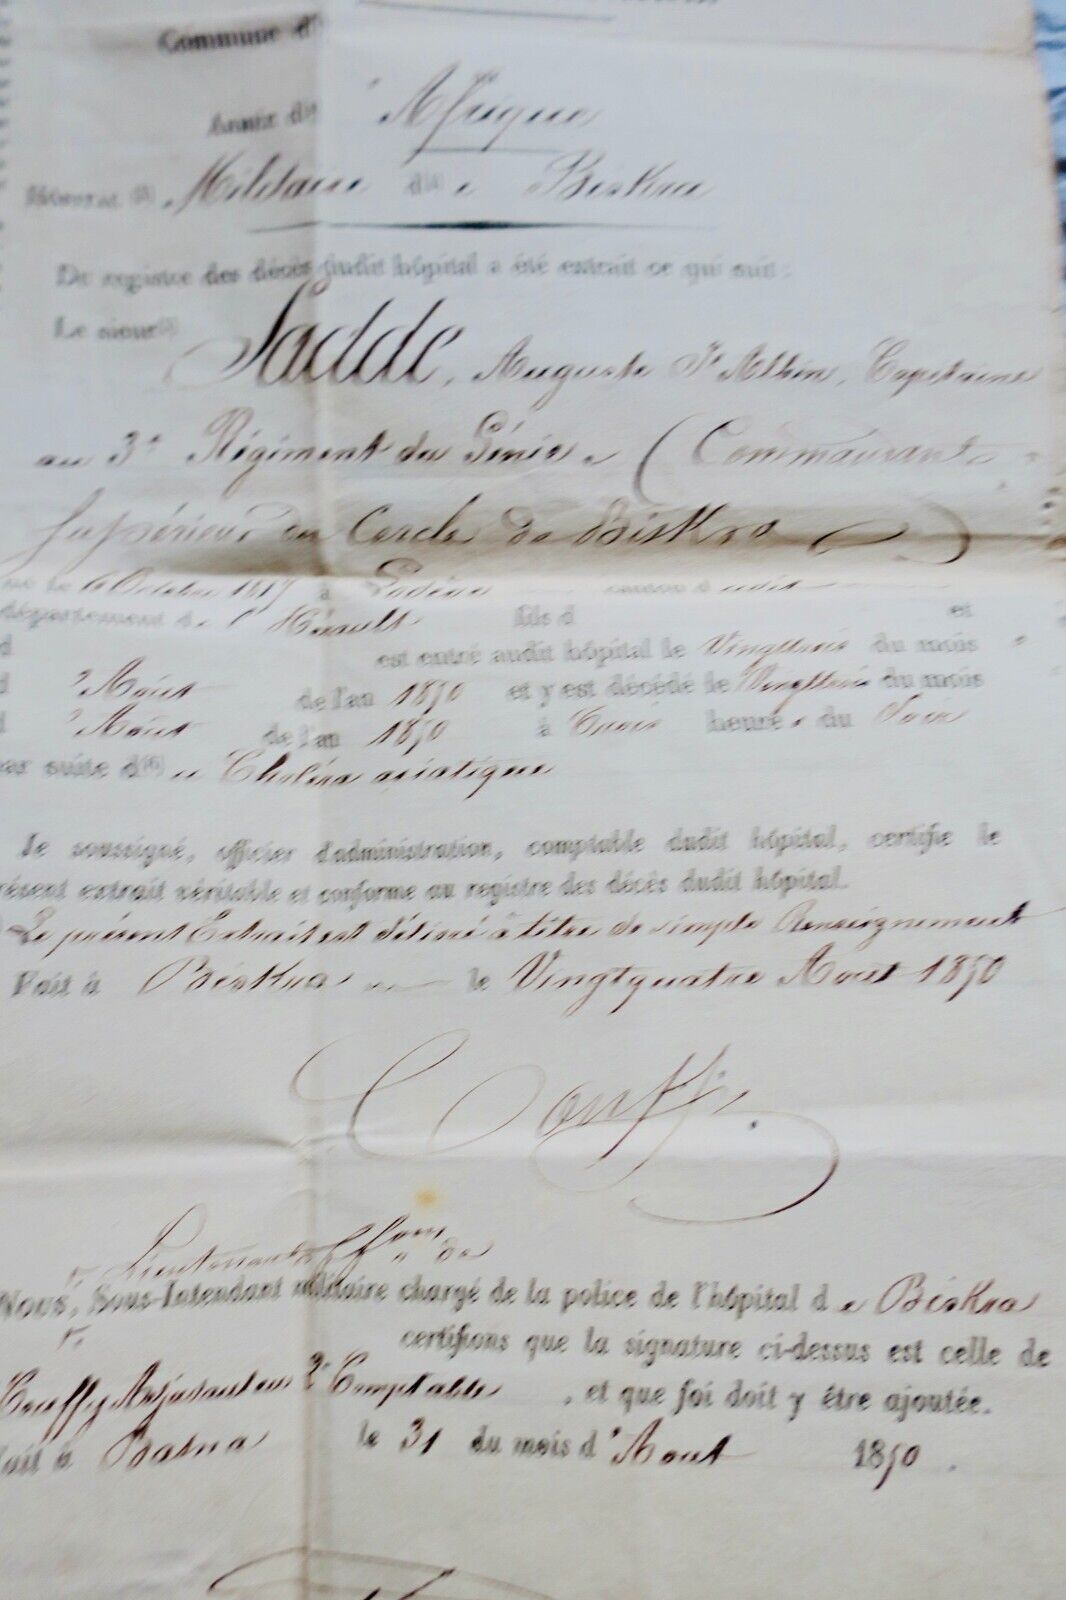 Commune d
Armée d' Afrique
Hôpital Militaire de Biskra
Du registre des décès dudit hôpital a été extrait ce qui suit:
Le sieur
Sadde, Auguste Capitaine
au 3e Régiment du Génie (Commandant
Supérieur du Cercle de Biskra)
né le 6 Octobre à Lodève canton d
département de l'Hérault fils d et
d est entré audit hôpital le Vingttrois du mois
d'Août de l'an 1850 et y est décédé le Vingttrois du mois
d'Août de l'an 1850 à Trois heures du Soir
par suite de Choléra asiatique
Je soussigné, officier d'administration, comptable dudit hôpital, certifie le
présent extrait véritable et conforme au registre des décès dudit hôpital.
Le présent Extrait est délivré à titre de simple Renseignement
Fait à Biskra le Vingtquatre Août 1850
Couffy
Lieutenant ffons de
Nous, Sous-Intendant militaire chargé de la police de l'hôpital de Biskra
certifions que la signature ci-dessus est celle de
Couffy Adjudant en 2e Comptable, et que foi doit y être ajoutée.
Fait à Batna le 31 du mois d'Août 1850.